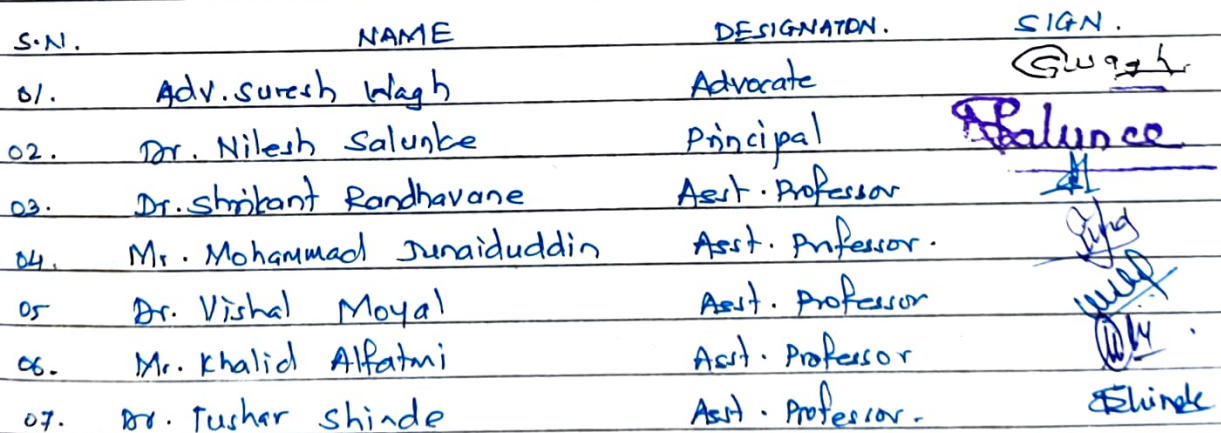 S.N. NAME DESIGNATON. SIGN.
01. Adv. Suresh Wagh Advocate Gwagh
02. Dr. Nilesh Salunke Principal
03. Dr. Shrikant Randhavane Asst. Professor
04. Mr. Mohammad Junaiduddin Asst. Professor.
05 Dr. Vishal Moyal Asst. Professor
06. Mr. Khalid Alfatmi Asst. Professor
07. Dr. Tushar Shinde Asst. Professor. Shinde